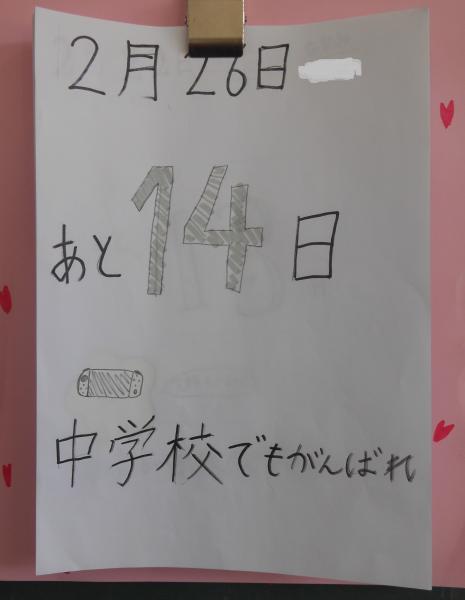 2月26日
あと14日
中学校でもがんばれ